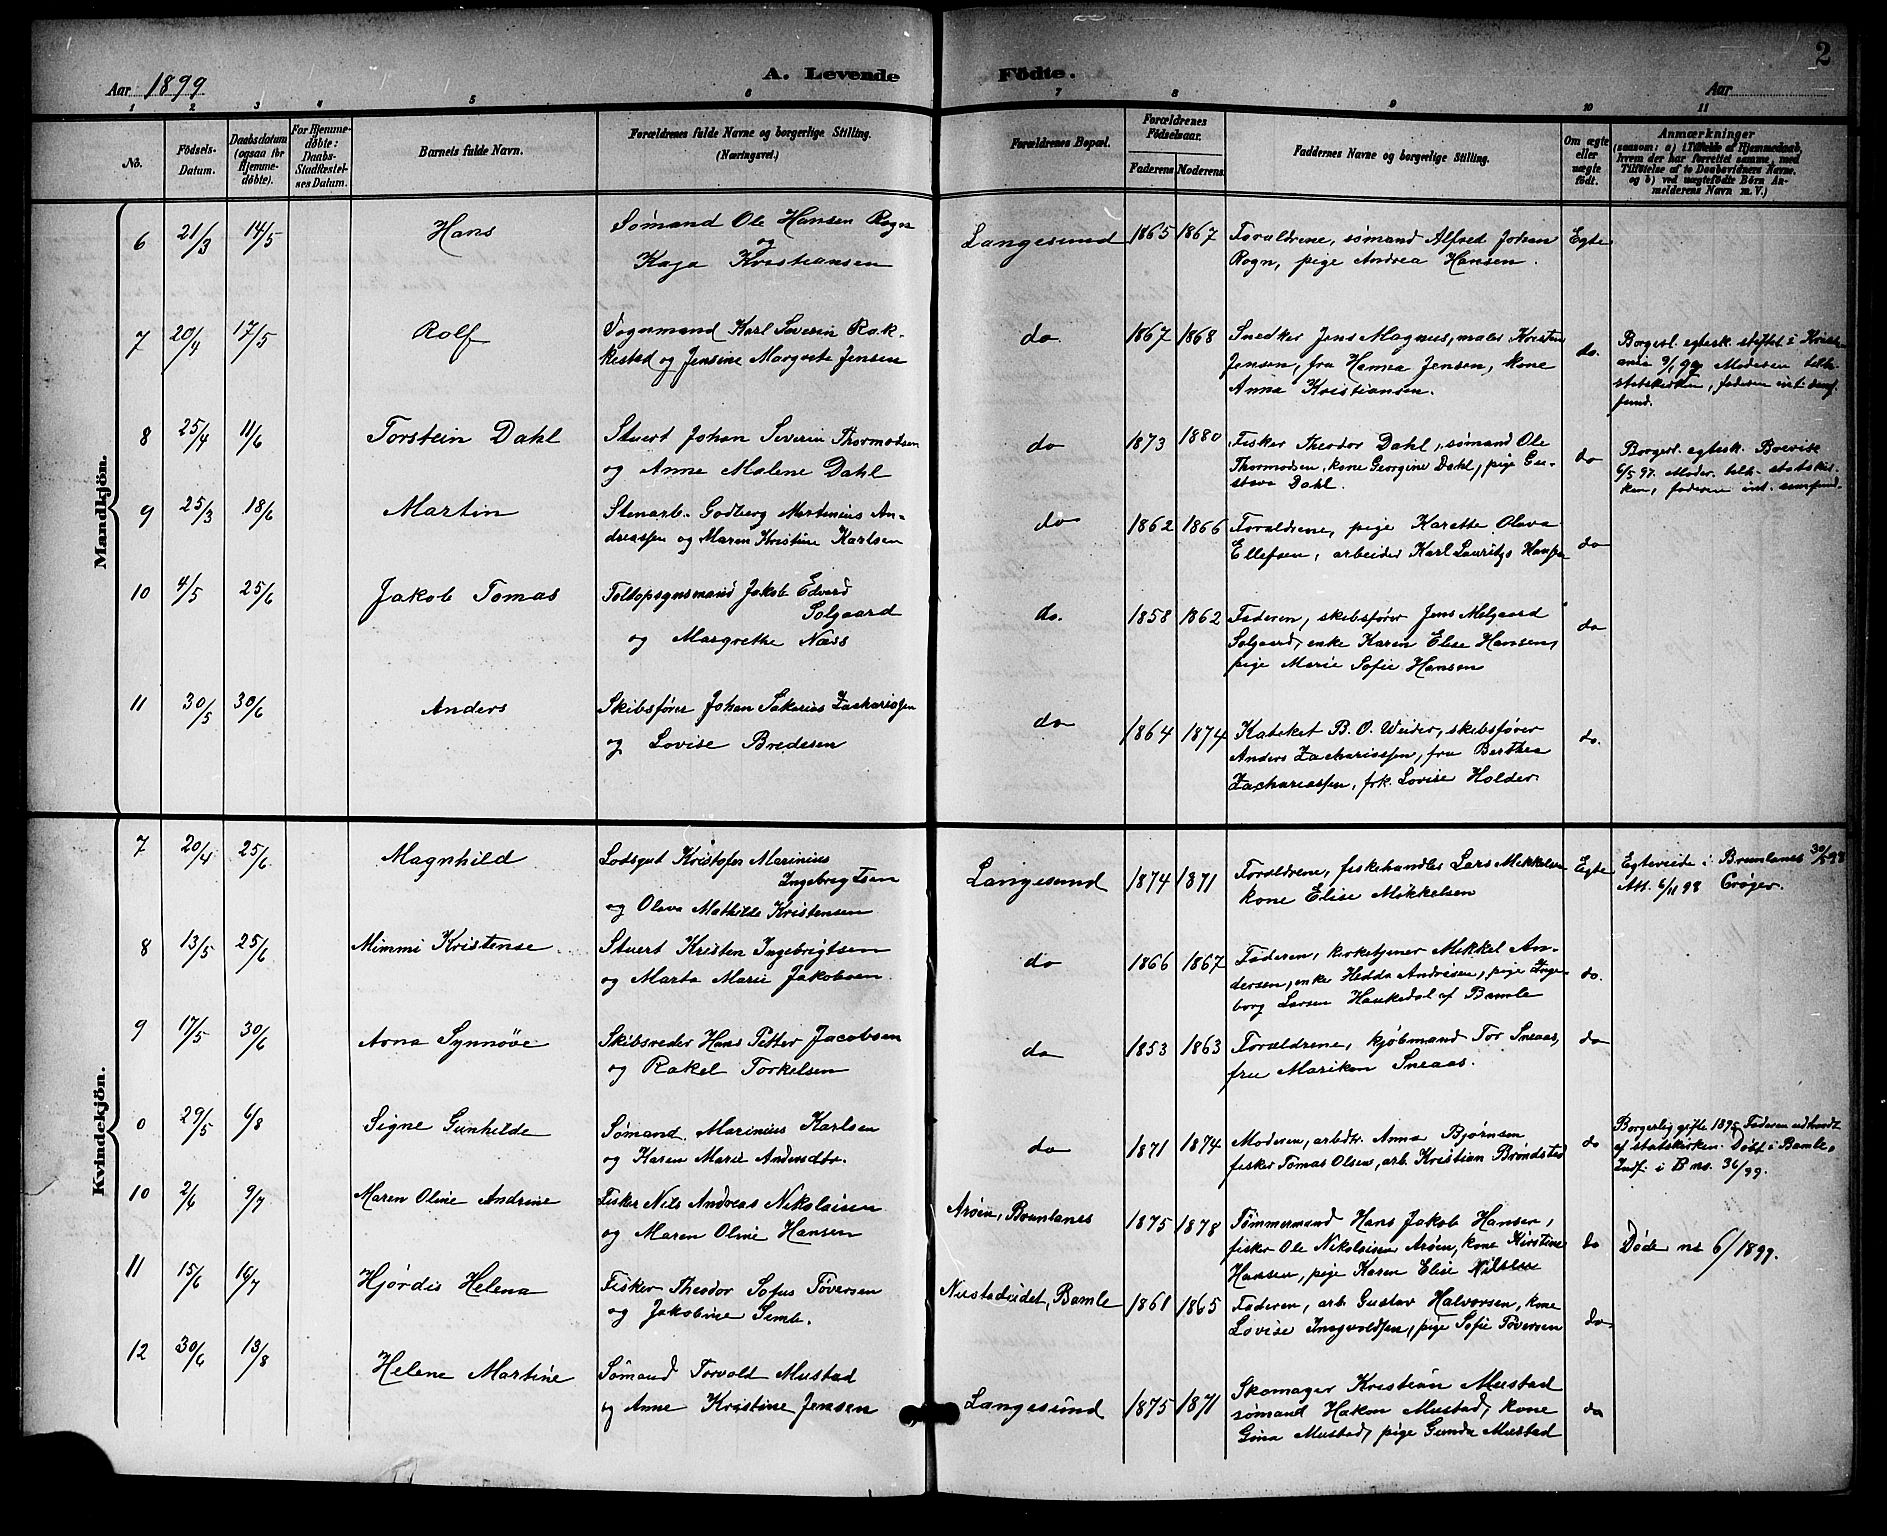 2
Aar 1899
A. Levende Födte.
Aar
1 2 3 4 5 6 7 8 9 10 11
No.
Födsels-Datum.
Daabsdatum (ogsaa for Hjemme-döbte).
For Hjemme-döbte: Daabs-Stadfæstel-ses Datum.
Barnets fulde Navn.
Forældrenes fulde Navne og borgerlige Stilling. (Næringsvei.)
Forældrenes Bopæl.
Forældrenes Födselsaar.
Faderens Moderens
Faddernes Navne og borgerlige Stilling.
Om ægte eller uægte födt.
Anmærkninger
(saasom: a) i Tilfælde af Hjemmedaab,
hvem der har forrettet samme, med
Tilföielse af to Daabsvidners Navne.
og b) ved uægtefödte Börn An-
melderens Navn m. V.)
Mandkjön.
6 21/3 14/5 Hans
Sømand Ole Hansen Rogn
og
Kaja Kristiansen
Langesund 1865 1867
Forældrene, sømand Alfred Johsen
Rogn, pige Andrea Hansen.
Egte
7 20/4 17/5 Rolf
Fogermand Karl Severin Rak-
kestad og Jensine Margrete Jensen
do. 1867 1868
Snedker Jens Magnus, maler Kristen
Jensen, fru Hanna Jensen, kone
Anna Kristiansen.
do.
Borgerl. egtesk. stiftet i Kristi-
ania 9/1 97. Moderen tilh.
statskirken, faderen int. sam-
fund.
8 25/4 11/6 Torstein Dahl
Stuert Johan Severin Thormodsen
og Anne Malene Dahl
do 1873 1880
Fisker Theodor Dahl, sømand Ole
Thormodsen, kone Georgine Dahl, pige Gu-
stava Dahl.
do
Borgerl. egtesk. Brevik
6/5 97. Moder. tilh. statskir-
ken, faderen int. samfund.
9 25/3 18/6 Martin
Stenarb. Godberg Martinius An-
dreassen og Maren Kristine Karlsen
do 1862 1866
Forældrene, pige Karette Olava
Ellefsen, arbeider Karl Lauritzs Hansen
do
10 4/5 25/6 Jakob Tomas
Toldopsynsmand Jakob Edvard
Solgaard
og Margrethe Næss
do. 1858 1862
Faderen, skibsfører Jens Melgaard
Solgaard, enke Karen Elise Hansen,
pige Marie Sofie Hansen
do
11 30/5 30/6 Anders
Skibsfører Johan Sakarias Zachariassen
og Lovise Bredesen
do 1864 1874
Kateket B. O. Weider, skibsfører
Anders Zachariassen, fru Berthea
Zachariassen, frk. Lovise Holder.
do.
Kvindekjön.
7 20/4 25/6 Magnhild
Lodsgut Kristofer Marinius
Ingebrigtsen
og Olava Mathilde Kristensen
Langesund 1874 1871
Forældrene, fiskehandler Lars Mikkelsen
kone Elise Mikkelsen
Egte
Egteviede i Brunlanes 30/5 98
Att. 6/11 98 Crøger.
8 13/5 25/6 Mimmi Kristense
Stuert Kristen Ingebrigtsen
og Marta Marie Jakobsen
do 1866 1867
Faderen, kirketjener Mikkel An-
dersen, enke Hedda Andersen, pige Inge-
borg Larsen Haukedal af Bamle
do.
9 17/5 30/6 Arna Synnöve
Skibsreder Hans Petter Jacobsen
og Rakel Torkelsen
do 1853 1863
Forældrene, kjøbmand Tor Sneaas,
fru Mariken Sneaas.
do
0 29/5 6/8 Signe Gunhilde
Sømand Marinius Karlsen
og Karen Marie Andersdtr.
do 1871 1874
Moderen, arbdtr. Anna Bjørnsen
fisker Tomas Olsen, arb. Kristian Brøndsted
do
Borgerlig gifte 1895. Faderen udtraadt
af statskirken. Døbt i Bamle.
Indf. i B ns. 36/99.
10 2/6 9/7 Maren Oline Andrine
Fisker Nils Andreas Nikolaisen
og Maren Oline Hansen
Arøen, Brunlanes 1875 1878
Tømmermand Hans Jakob Hansen,
fisker Ole Nikolaisen Arøen, kone Kirstine
Hansen, pige Karen Elise Nilsen
do
Døde ns 6/1899.
11 15/6 16/7 Hjørdis Helena
Fisker Theodor Sofus Tøversen
og Jakobine Semb.
Nustadeidet, Bamle 1861 1865
Faderen, arb. Gustav Halvorsen, kone
Lovise Ingvoldsen, pige Sofie Tøversen
do
12 30/6 13/8 Helene Martine
Sømand Torvald Mustad
og Anne Kristine Jensen
Langesund 1875 1871
Skomager Kristian Mustad
sømand Hakon Mustad, kone
Gina Mustad, pige Gunda Mustad
do